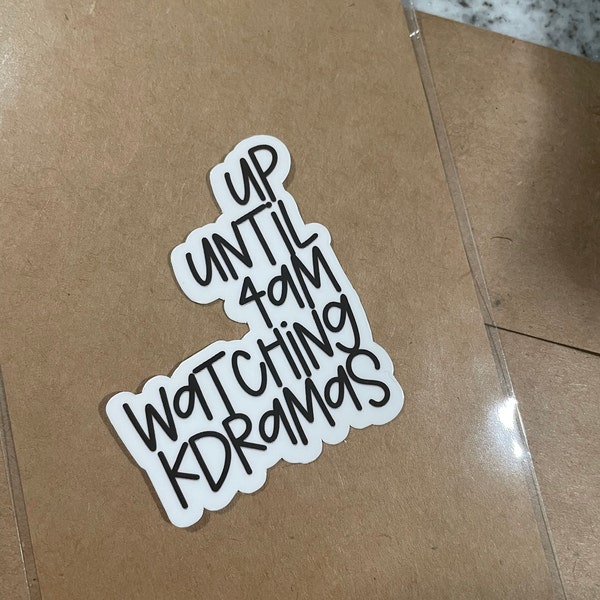 UP
UNTiL
4aM
WaTCHiNg
KDRaMaS